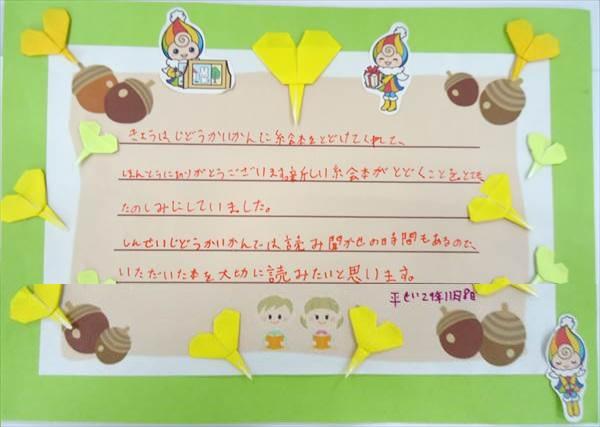 きょうは、じどうかいかんに絵本をとどけてくれて、
ほんとうにありがとうございます。新しい絵本がとどくことをとても
たのしみにしていました。
しんせいじどうかいかんでは読み聞かせの時間もあるので、
いただいた本を大切に読みたいと思います。
平せい29年11月8日